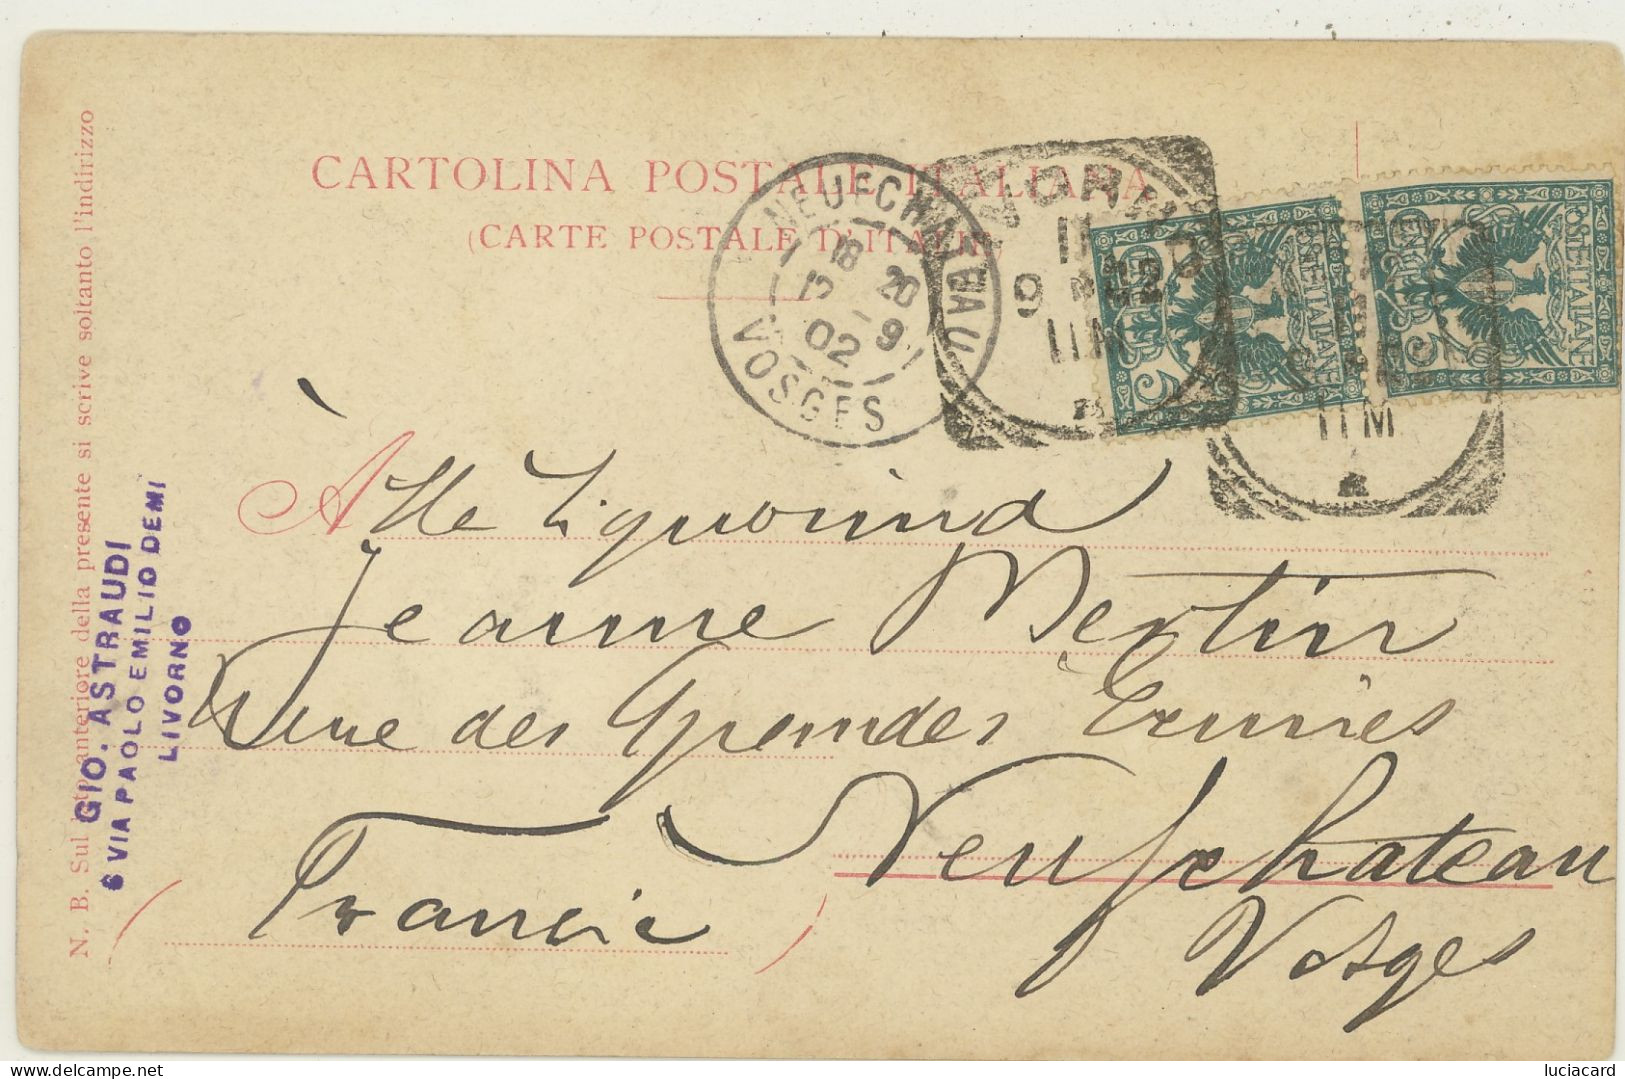 CARTOLINA POSTALE ITALIANA
(CARTE POSTALE D'ITALIE)
N. B. Sul lato anteriore della presente si scrive soltanto l'indirizzo
GIO. ASTRAUDI
6 VIA PAOLO EMILIO DEMI
LIVORNO
NEUFCHATEAU
18 20
02 9
VOSGES
9
11 M
11 M
POSTE ITALIANE
CENT. 5
POSTE ITALIANE
CENT. 5
Alle Signorina
Jeanne Mertin
Rue des Grandes Ecuries
Neufchateau
Vosges
(Francia)
luciacard